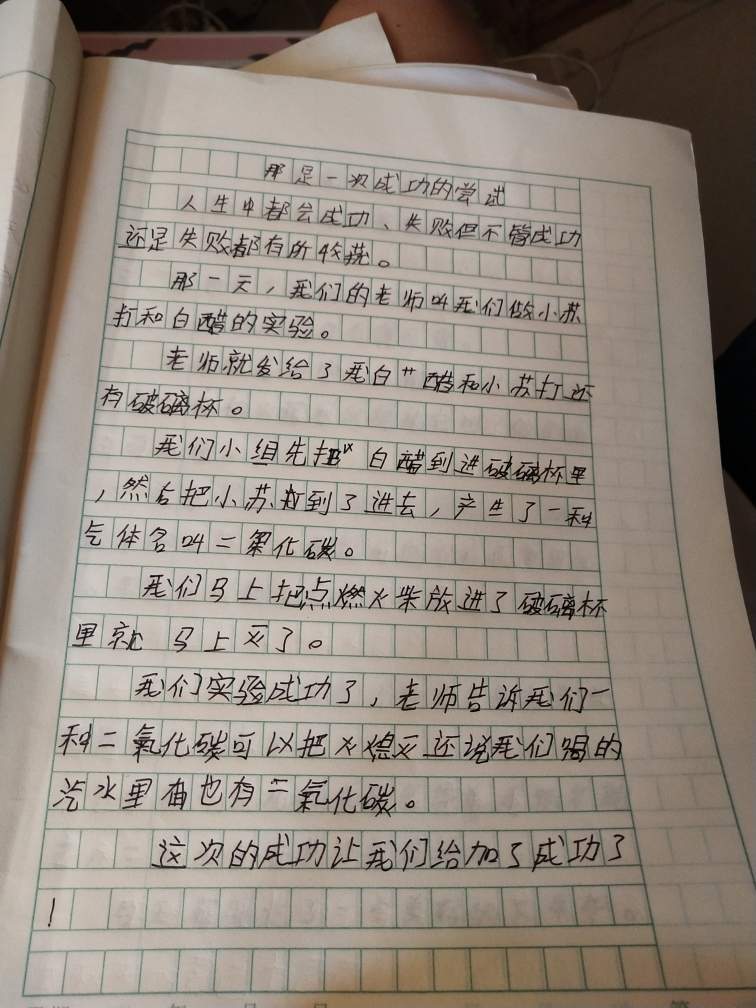 那是一次成功的尝试
人生中都会成功、失败但不管成功
还是失败都有所收获。
那一天，我们的老师叫我们做小苏
打和白醋的实验。
老师就发给了我白醋和小苏打还
有玻璃杯。
我们小组先把白醋到进玻璃杯里
，然后把小苏打到了进去，产生了一种
气体名叫二氧化碳。
我们马上把点燃火柴放进了玻璃杯
里就马上灭了。
我们实验成功了，老师告诉我们一
种二氧化碳可以把火熄灭还说我们喝的
汽水里面也有二氧化碳。
这次的成功让我们给加了成功了
！